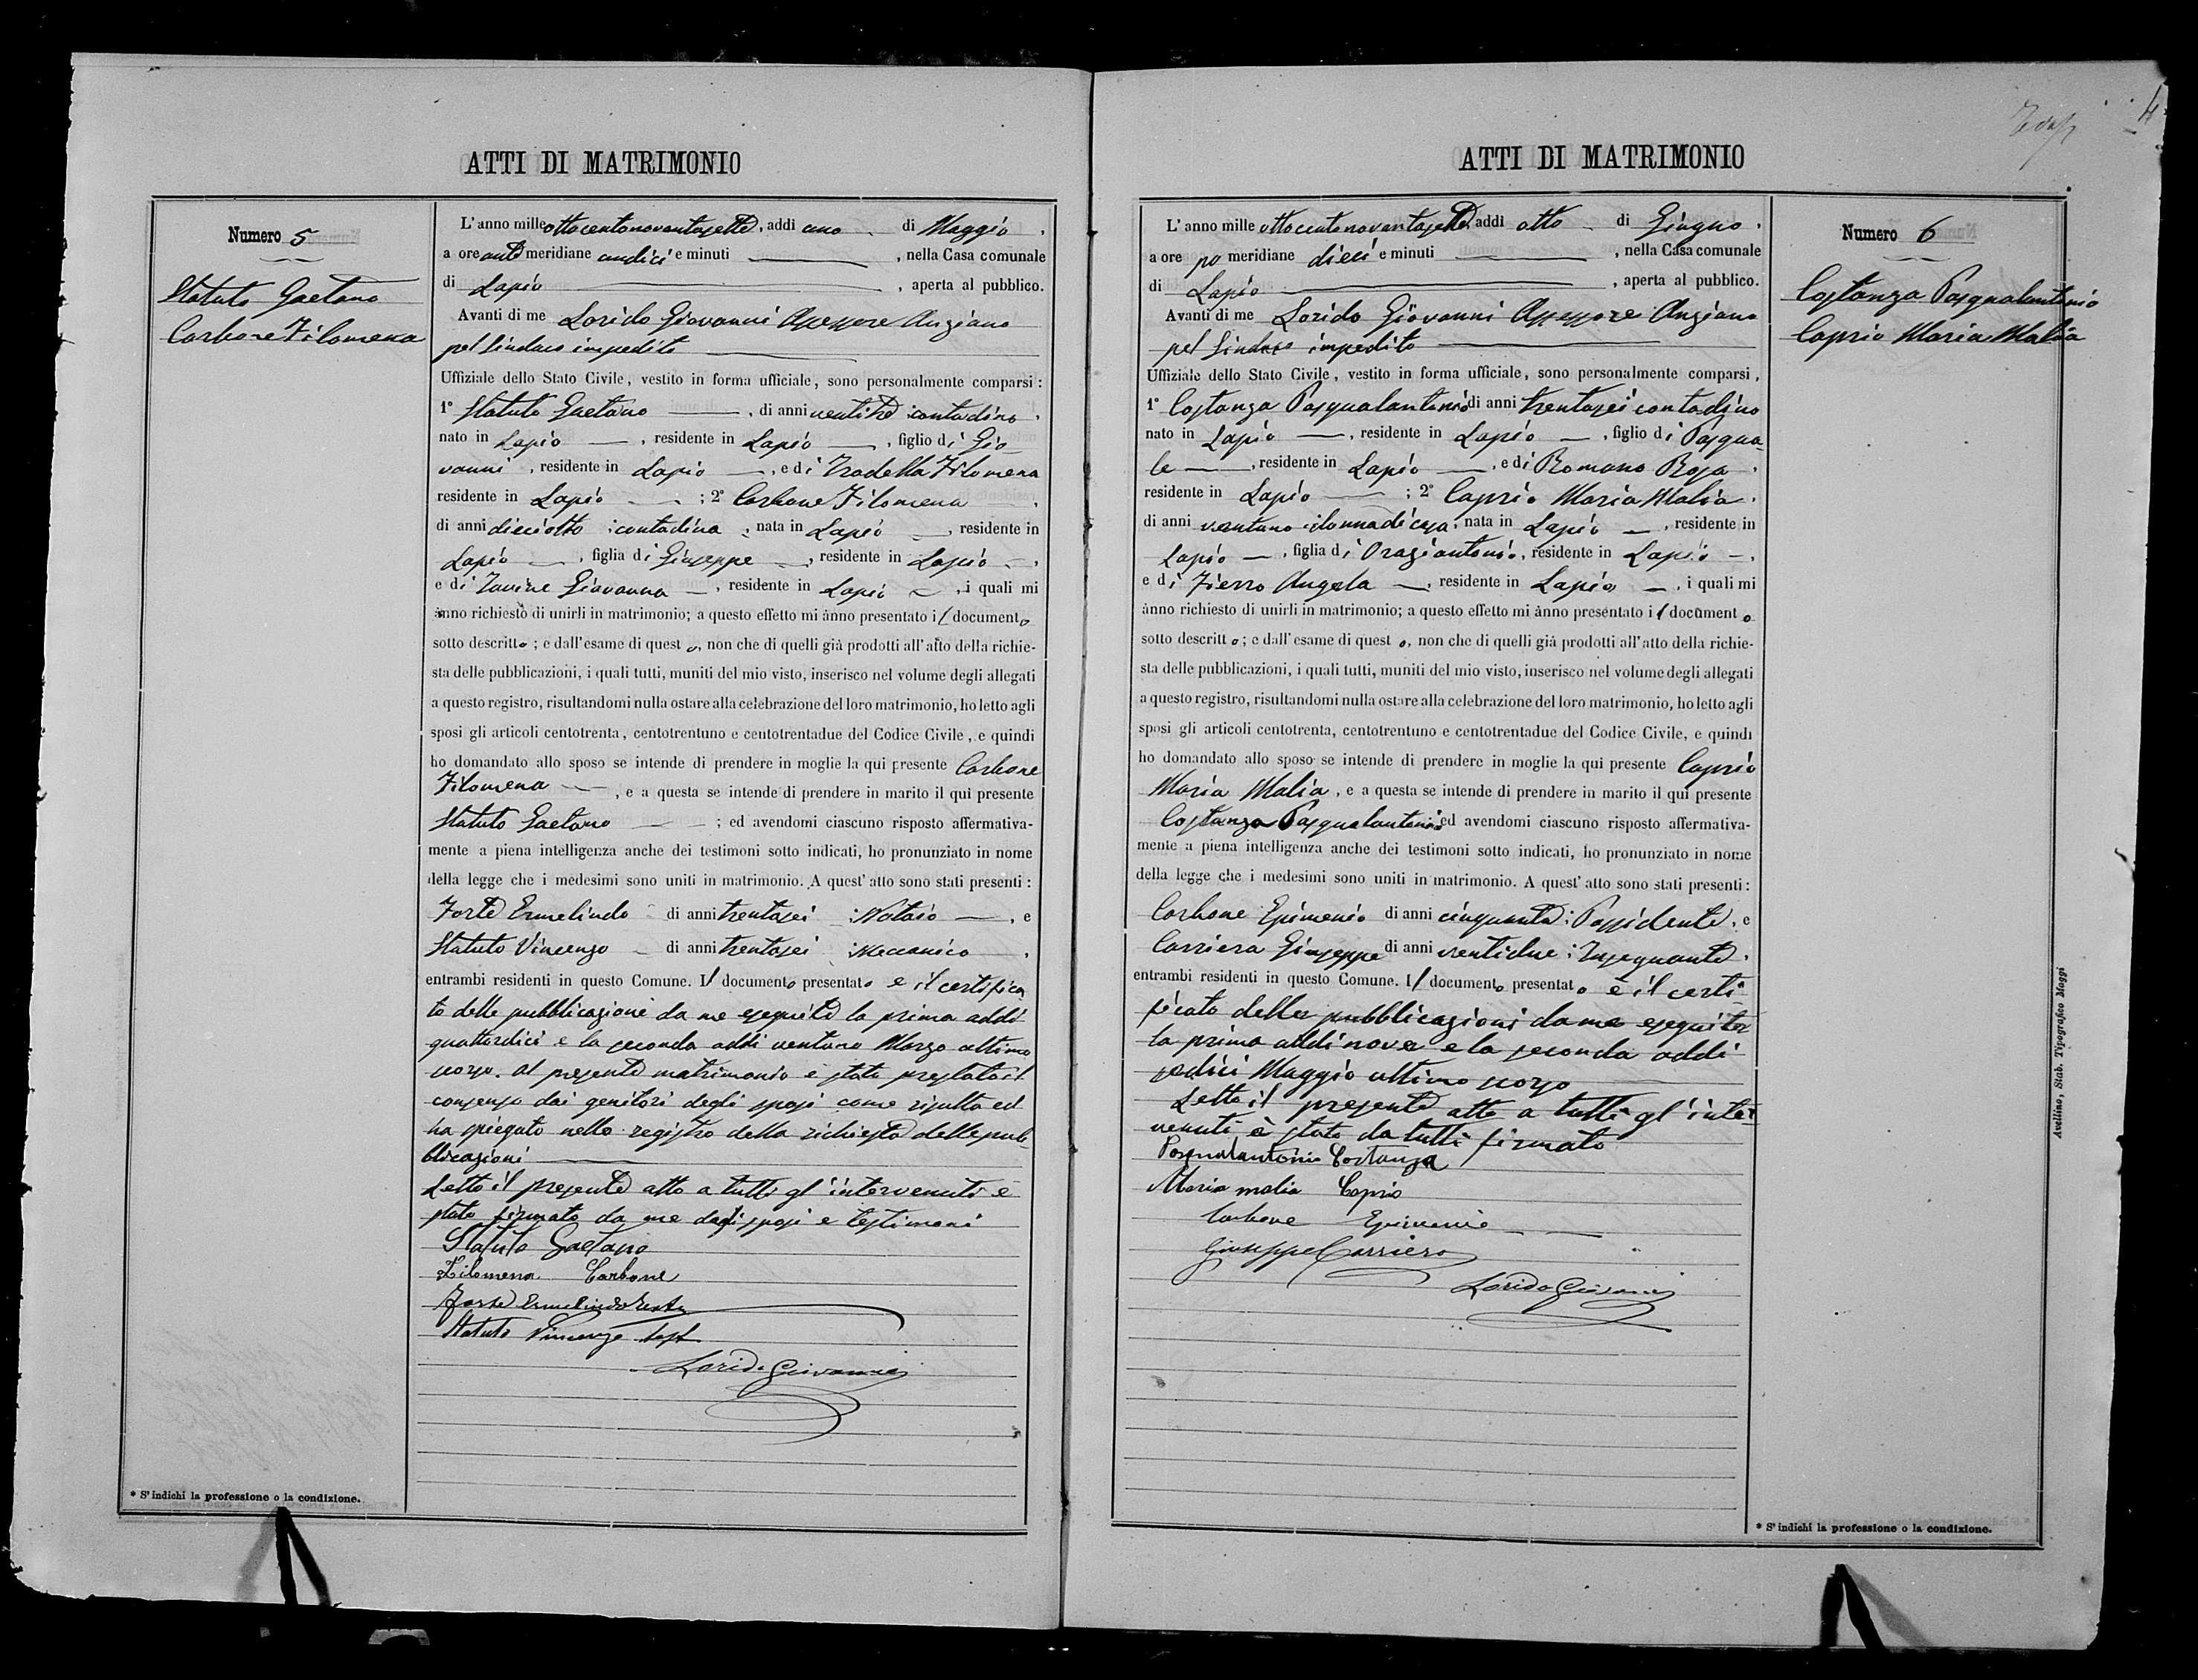 ATTI DI MATRIMONIO
Numero 5
Statuto Gaetano
Carbone Filomena
L'anno mille ottocentonovantasette, addì uno di Maggio,
a ore ante meridiane undici e minuti , nella Casa comunale
di Lapio , aperta al pubblico.
Avanti di me Lorido Giovanni Assessore Anziano
pel Sindaco impedito
Uffiziale dello Stato Civile, vestito in forma ufficiale, sono personalmente comparsi:
1° Statuto Gaetano , di anni ventitre contadino,
nato in Lapio , residente in Lapio , figlio di Gio-
vanni , residente in Lapio , e di Iradella Filomena
residente in Lapio ; 2° Carbone Filomena
di anni dieciotto contadina , nata in Lapio , residente in
Lapio , figlia di Giuseppe , residente in Lapio ,
e di Giovanna , residente in Lapio , i quali mi
ànno richiesto di unirli in matrimonio; a questo effetto mi ànno presentato il documento
sotto descritto; e dall'esame di questo, non che di quelli già prodotti all'atto della richie-
sta delle pubblicazioni, i quali tutti, muniti del mio visto, inserisco nel volume degli allegati
a questo registro, risultandomi nulla ostare alla celebrazione del loro matrimonio, ho letto agli
sposi gli articoli centotrenta, centotrentuno e centotrentadue del Codice Civile, e quindi
ho domandato allo sposo se intende di prendere in moglie la qui presente Carbone
Filomena , e a questa se intende di prendere in marito il qui presente
Statuto Gaetano ; ed avendomi ciascuno risposto affermativa-
mente a piena intelligenza anche dei testimoni sotto indicati, ho pronunziato in nome
della legge che i medesimi sono uniti in matrimonio. A quest'atto sono stati presenti:
Forte Ermelindo di anni trentasei Notaio , e
Statuto Vincenzo di anni trentasei Meccanico ,
entrambi residenti in questo Comune. Il documento presentato è il certifica
to delle pubblicazioni da me eseguite la prima addì
quattordici e la seconda addì ventuno Marzo ultimo
scorso. Al presente matrimonio è stato prestato il
consenso dai genitori degli sposi come risulta ed
ha spiegato nello registro della richiesta delle pub
blicazioni
Letto il presente atto a tutti gl'intervenuti è
stato firmato da me dagli sposi e testimoni
Statuto Gaetano
Filomena Carbone
Forte Ermelindo teste
Statuto Vincenzo test
Lorido Giovanni
* S'indichi la professione o la condizione.
4
ATTI DI MATRIMONIO
Numero 6
Costanza Pasqualantonio
Caprio Maria Malia
L'anno mille ottocentonovantasette, addì otto di Giugno,
a ore po meridiane dieci e minuti , nella Casa comunale
di Lapio , aperta al pubblico.
Avanti di me Lorido Giovanni Assessore Anziano
pel Sindaco impedito
Uffiziale dello Stato Civile, vestito in forma ufficiale, sono personalmente comparsi,
1° Costanza Pasqualantonio di anni trentasei contadino
nato in Lapio , residente in Lapio , figlio di Pasqua-
le , residente in Lapio , e di Romano Rosa ,
residente in Lapio ; 2° Caprio Maria Malia,
di anni ventuno donna di casa, nata in Lapio , residente in
Lapio , figlia di Oraziantonio, residente in Lapio ,
e di Fierro Angela , residente in Lapio , i quali mi
ànno richiesto di unirli in matrimonio; a questo effetto mi ànno presentato il documento
sotto descritto; e dall'esame di questo, non che di quelli già prodotti all'atto della richie-
sta delle pubblicazioni, i quali tutti, muniti del mio visto, inserisco nel volume degli allegati
a questo registro, risultandomi nulla ostare alla celebrazione del loro matrimonio, ho letto agli
sposi gli articoli centotrenta, centotrentuno e centotrentadue del Codice Civile, e quindi
ho domandato allo sposo se intende di prendere in moglie la qui presente Caprio
Maria Malia, e a questa se intende di prendere in marito il qui presente
Costanza Pasqualantonio ed avendomi ciascuno risposto affermativa-
mente a piena intelligenza anche dei testimoni sotto indicati, ho pronunziato in nome
della legge che i medesimi sono uniti in matrimonio. A quest'atto sono stati presenti:
Carbone Epimenio di anni cinquanta; Possidente, e
Carriero Giuseppe di anni ventidue; Insegnante,
entrambi residenti in questo Comune. Il documento presentato è il certi-
ficato delle pubblicazioni da me eseguite
la prima addì nove e la seconda addì
sedici Maggio ultimo scorso
Letto il presente atto a tutti gl'inter-
venuti è stato da tutti firmato
Pasqualantonio Costanza
Maria malia Caprio
Carbone Epimenio
Giuseppe Carriero
Lorido Giovanni
* S'indichi la professione o la condizione.
Avellino, Stab. Tipografico Maggi